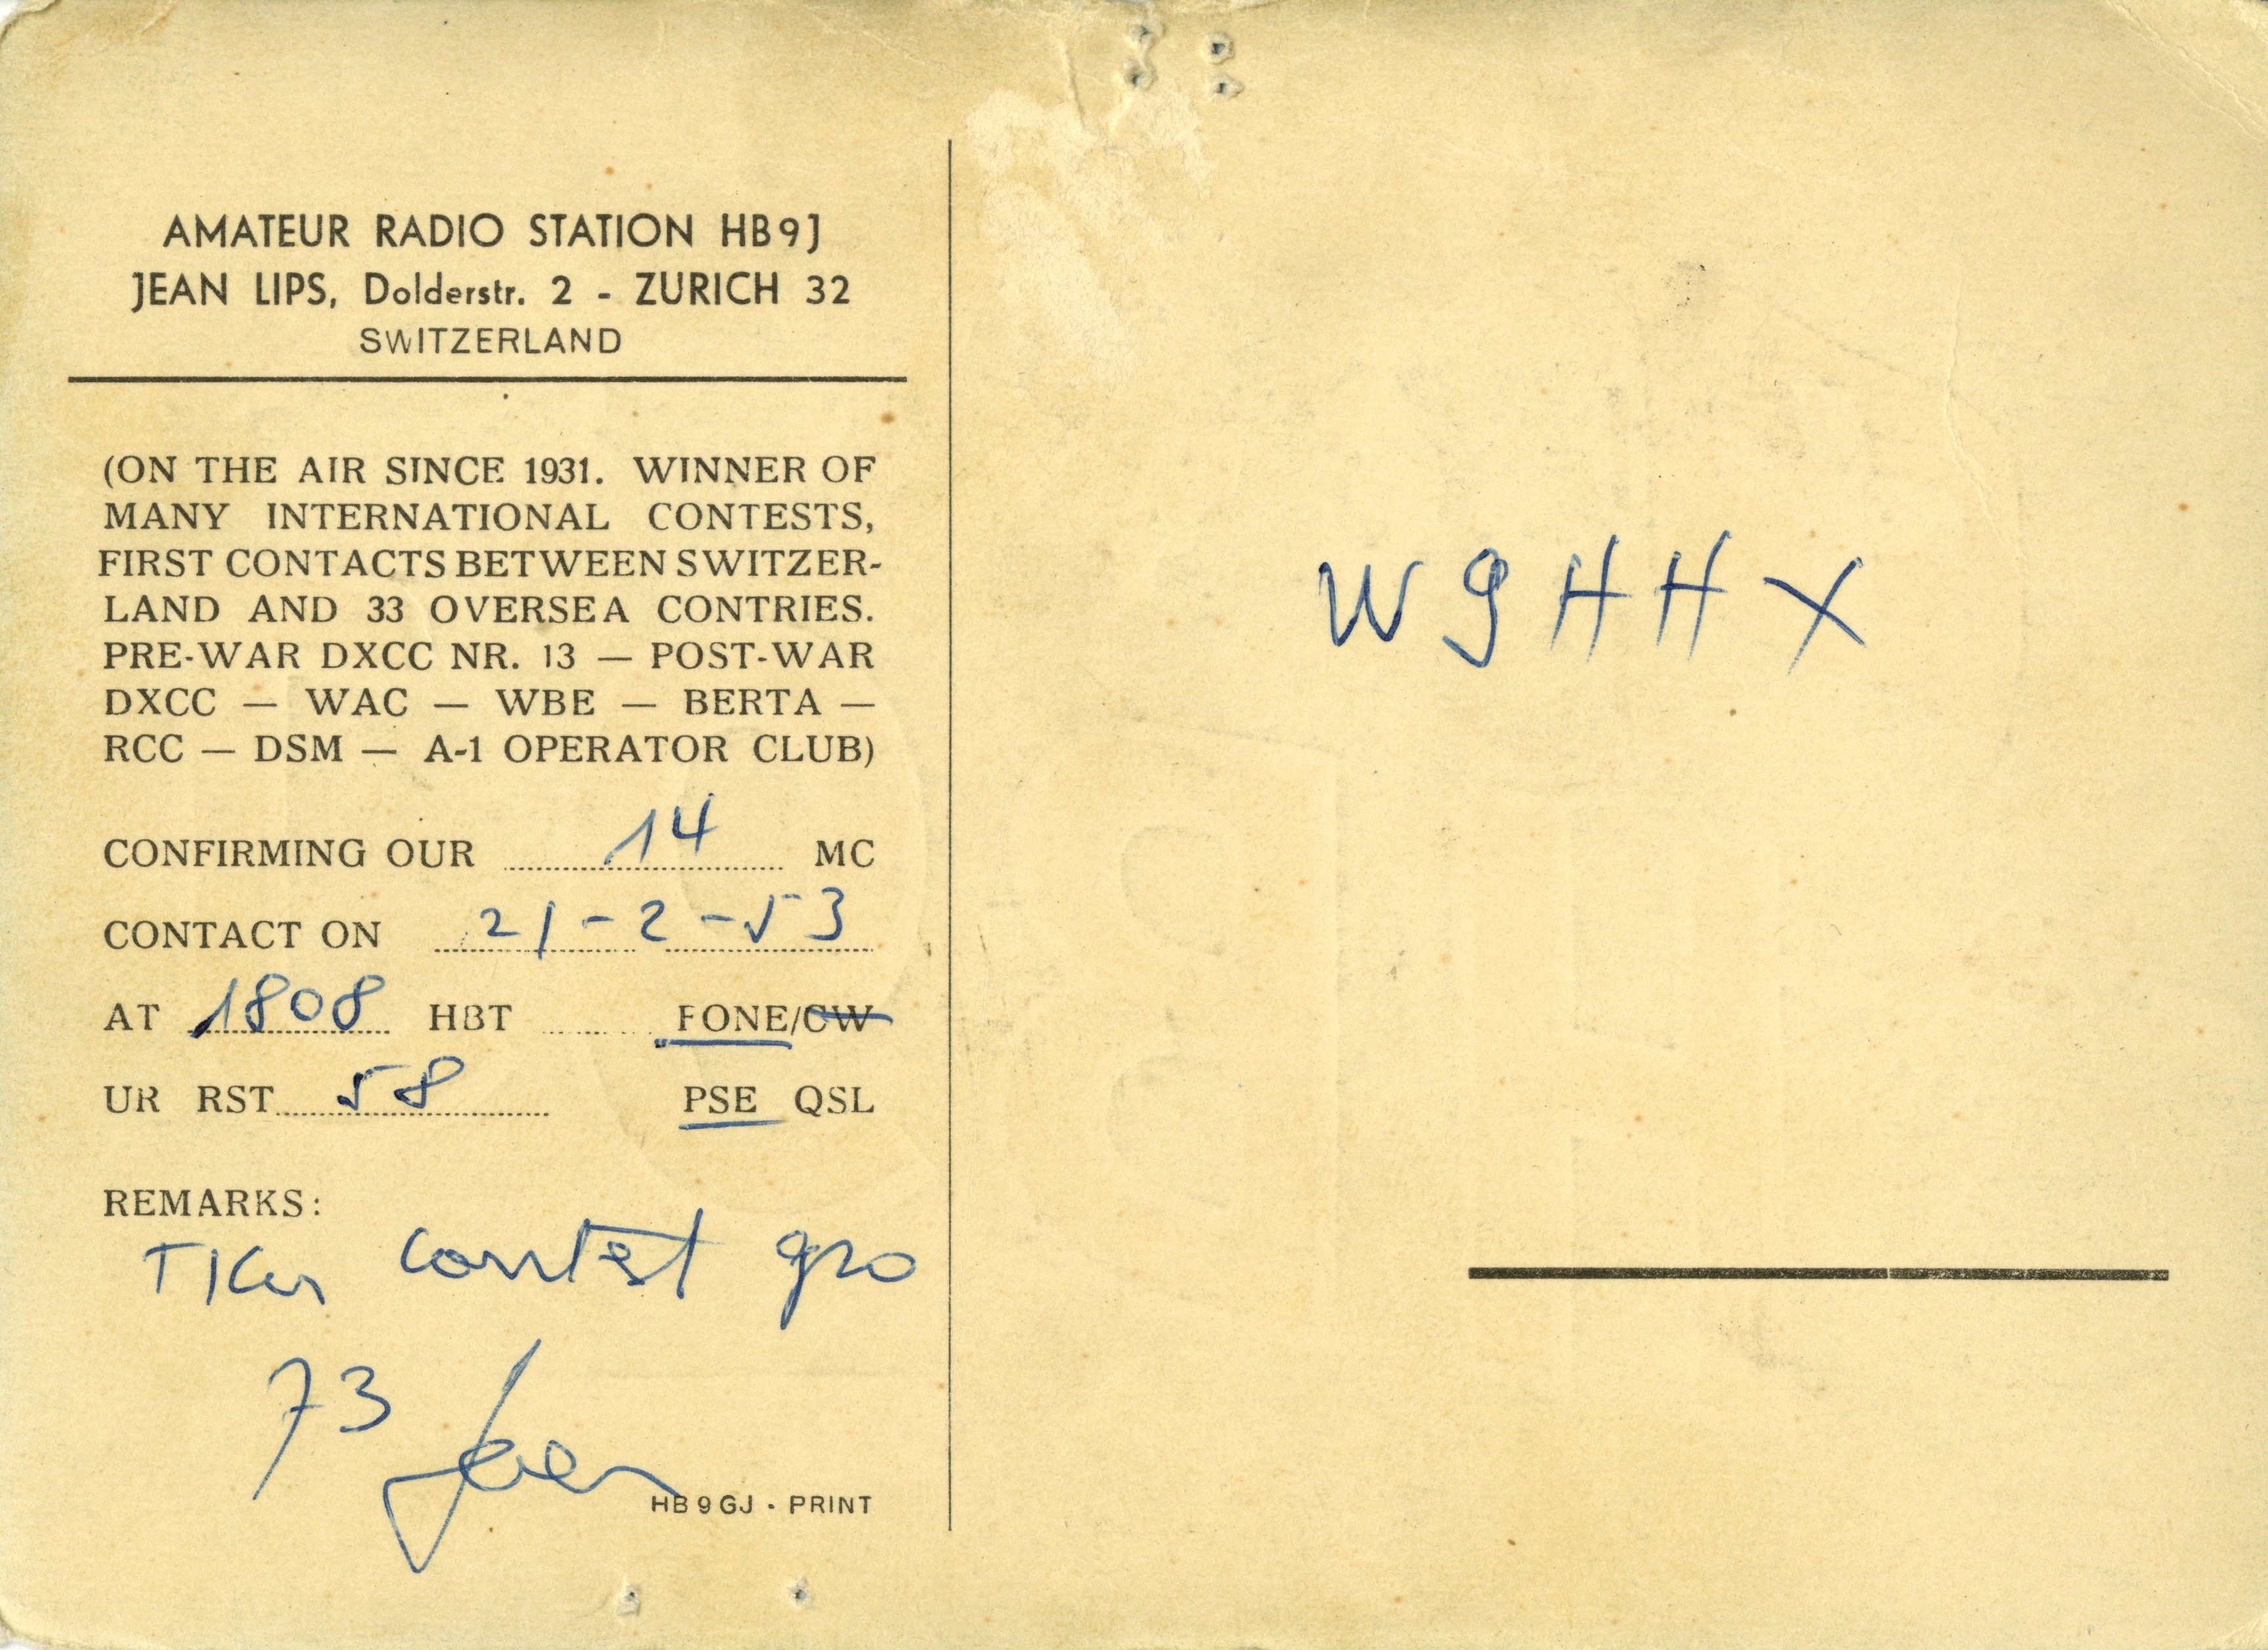 AMATEUR RADIO STATION HB9J
JEAN LIPS, Dolderstr. 2 - ZURICH 32
SWITZERLAND
(ON THE AIR SINCE 1931. WINNER OF
MANY INTERNATIONAL CONTESTS,
FIRST CONTACTS BETWEEN SWITZER-
LAND AND 33 OVERSEA CONTRIES.
PRE-WAR DXCC NR. 13 — POST-WAR
DXCC — WAC — WBE — BERTA —
RCC — DSM — A-1 OPERATOR CLUB)
CONFIRMING OUR 14 MC
CONTACT ON 21-2-53
AT 1808 HBT FONE/CW
UR RST 58 PSE QSL
REMARKS:
contest qso
73 Jean
HB9GJ · PRINT
W9HHX